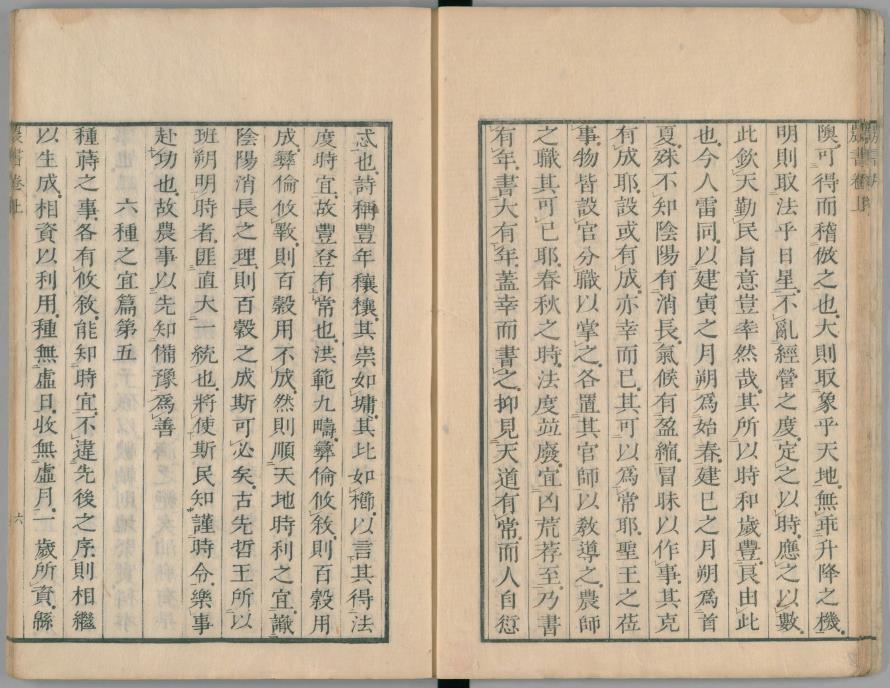 農書卷上
隩可得而稽倣之也大則取象乎天地無乖升降之機
明則取法乎日星不亂經營之度定之以時應之以數
此欽天勤民旨意豈率然哉其所以時和歲豐良由此
也今人雷同以建寅之月朔爲始春建巳之月朔爲首
夏殊不知陰陽有消長氣候有盈縮冒昧以作事其克
有成耶設或有成亦幸而已其可以爲常耶聖王之莅
事物皆設官分職以掌之各置其官師以敎導之農師
之職其可已耶春秋之時法度並廢宜凶荒荐至乃書
有年書大有年蓋幸而書之抑見天道有常而人自愆
忒也詩稱豐年穰穰其崇如墉其比如櫛以言其得法
度時宜故豐登有常也洪範九疇彝倫攸敘則百穀用
成彝倫攸斁則百穀用不成然則順天地時利之宜識
陰陽消長之理則百穀之成斯可必矣古先哲王所以
班朔明時者匪直大一統也將使斯民知謹時令樂事
赴功也故農事以先知備豫爲善
六種之宜篇第五
種蒔之事各有攸敘能知時宜不違先後之序則相繼
以生成相資以利用種無虛日收無虛月一歲所資緜
農書卷上 六